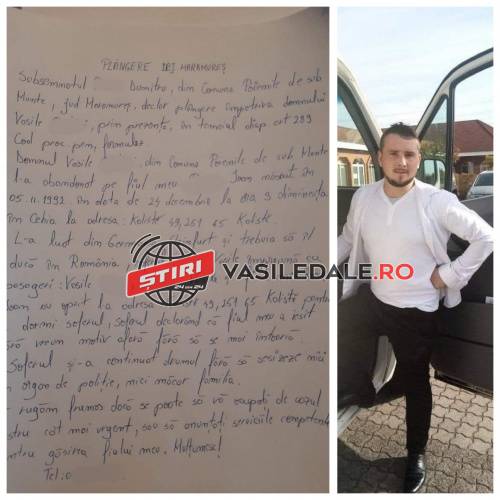 PLÂNGERE IPJ MARAMUREȘ
Subsemnatul Dumitru, din Comuna Poienile de sub
Munte, jud Maramureș, declar plângere împotriva domnului
Vasile , prin prezenta, în temeiul disp art 289
Cod proc. pen, formulez
Domnul Vasile , din Comuna Poienile de sub Munte
l-a abandonat pe fiul meu Ioan născut în
05.11.1992, în data de 24 decembrie la ora 9 dimineața
în Cehia la adresa: Kolště 49, 261 65 Kolště.
L-a luat din Germ și trebuia să îl
ducă în România Vasile împreună cu
pasageri: Vasile
au oprit la adresa 49, 261 65 Kolště pentru
dormi soferul, soferul declarând că fiul meu a ieșit
fără vreun motiv afară fără să se mai întoarcă.
Soferul și-a continuat drumul fără să sesizeze nici
un organ de poliție, nici măcar familia.
rugăm frumos dacă se poate să vă ocupați de cazul
stru cât mai urgent, sau să anunțați serviciile competente
ntru găsirea fiului meu. Mulțumesc!
Tel.:
ȘTIRI
24 DIN 24
VASILEDALE.RO